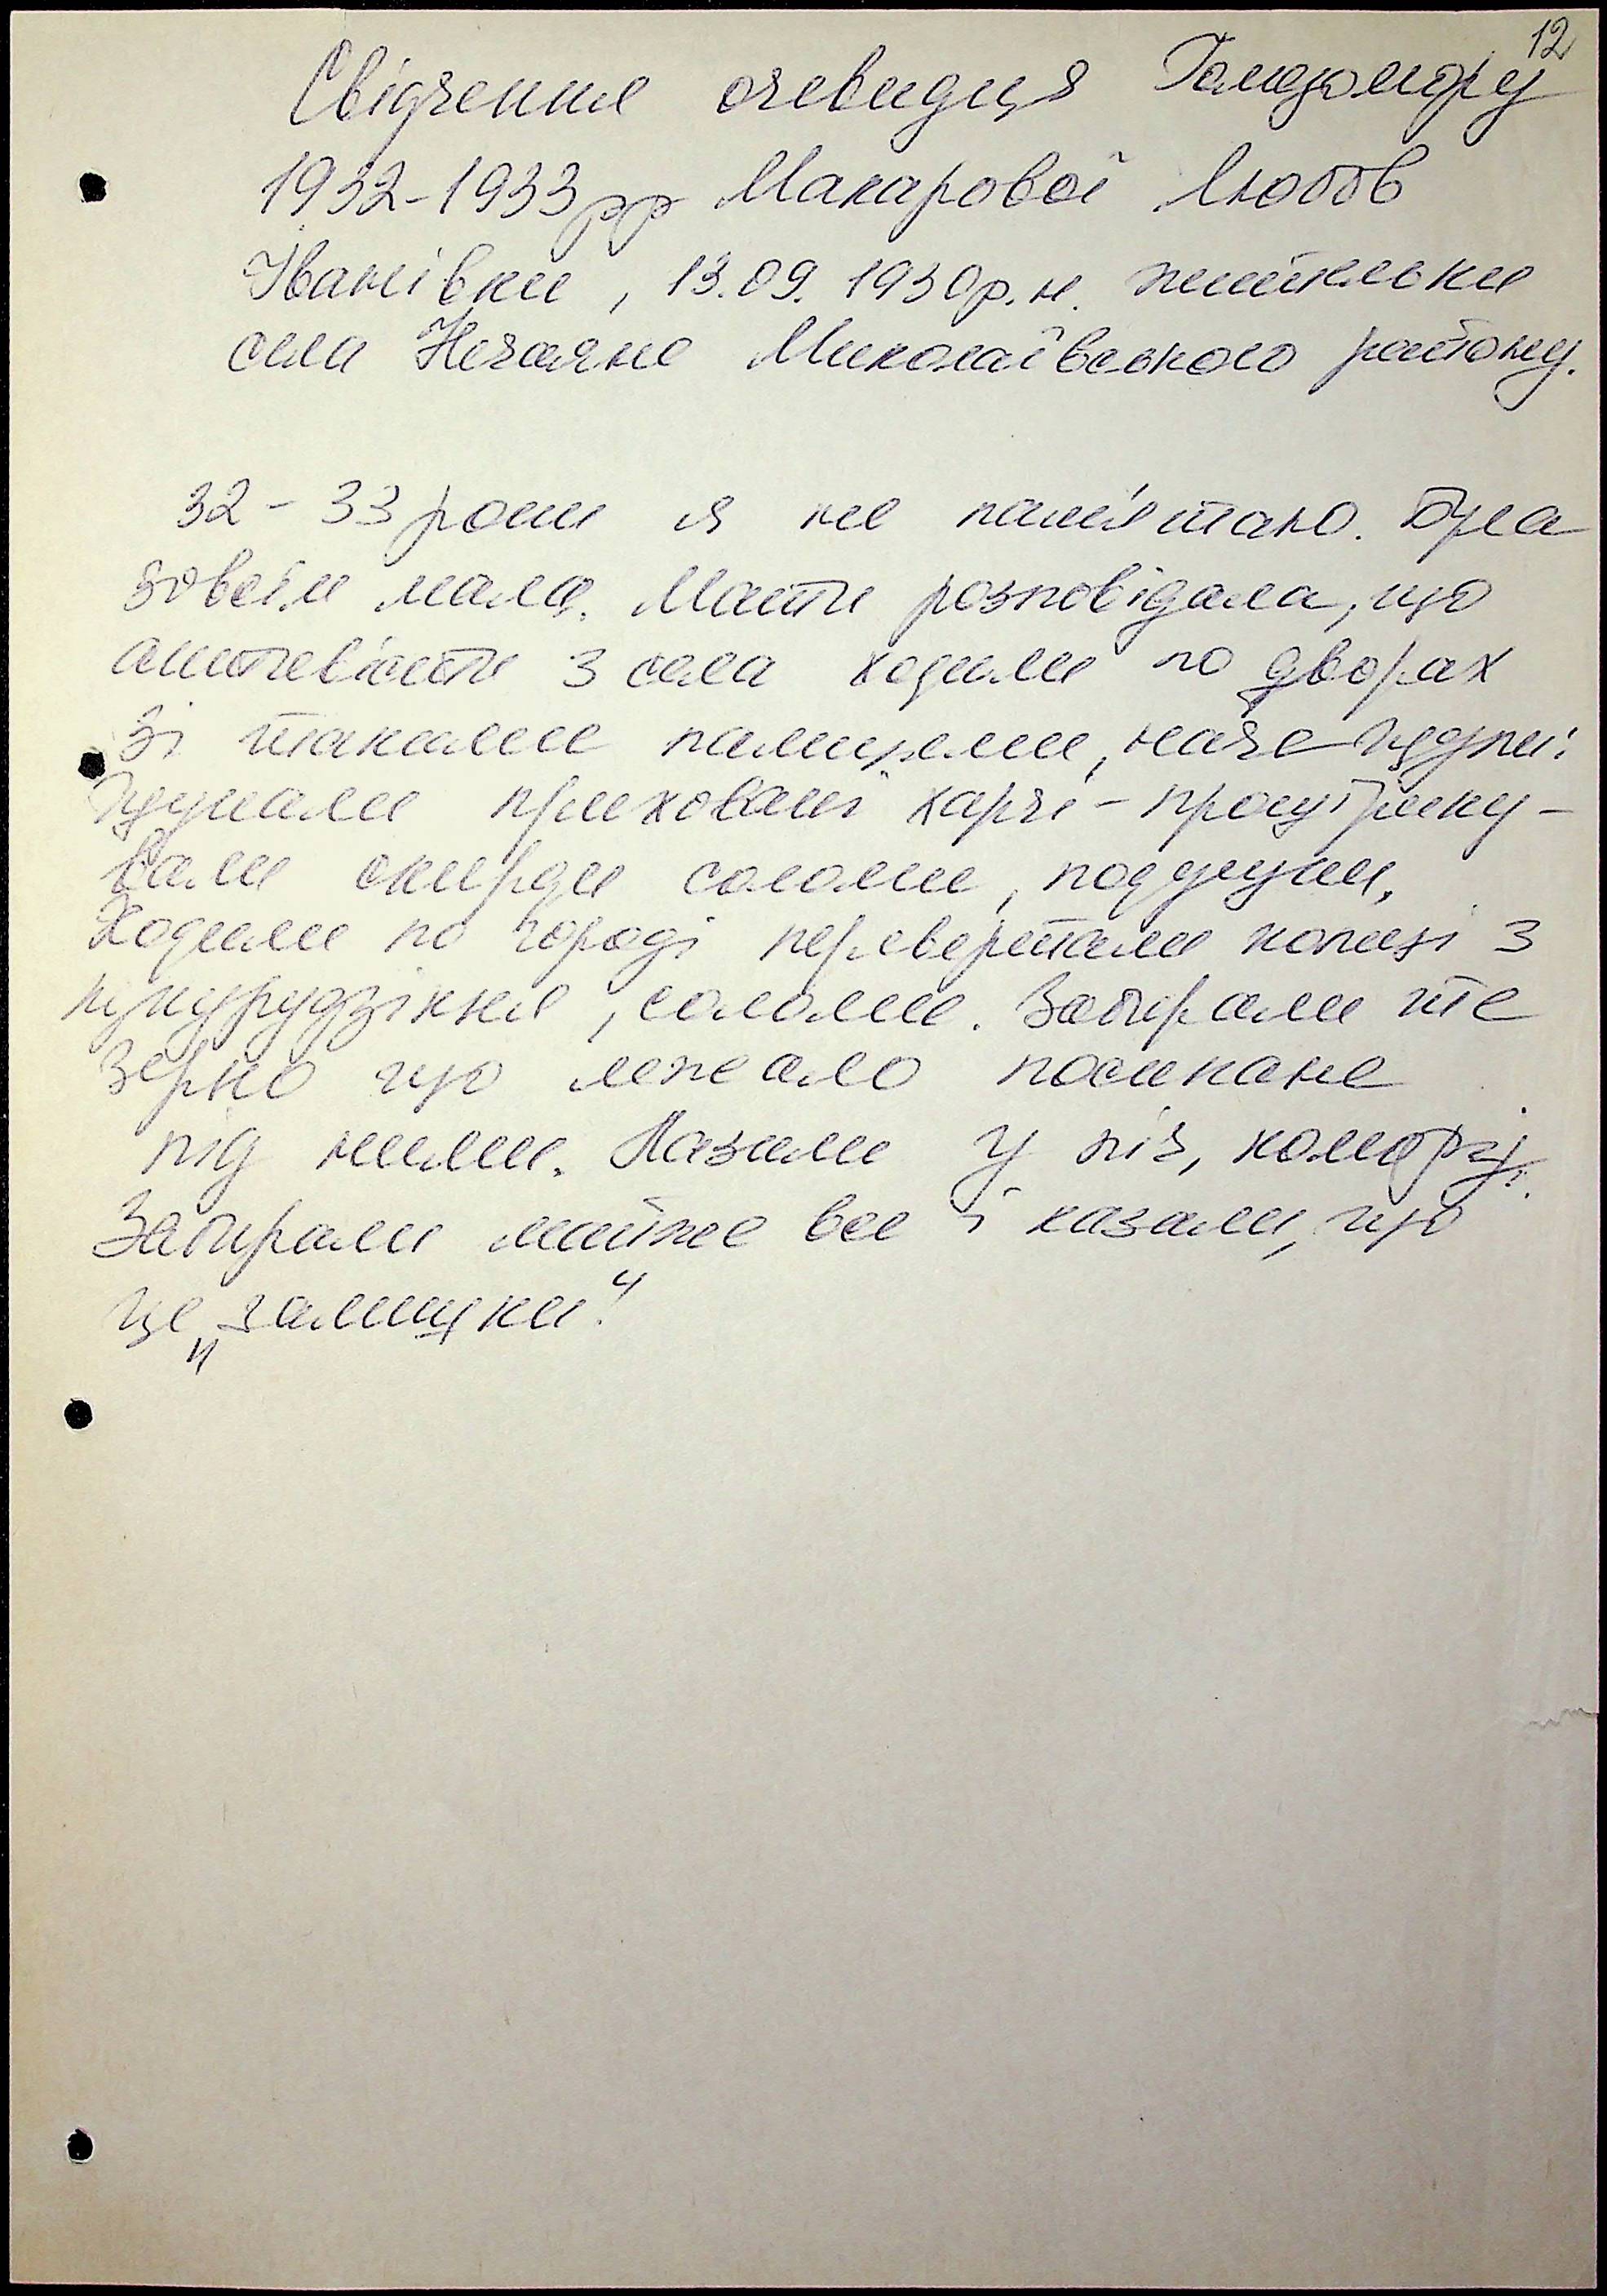 12
Свідчення очевидця Голодомору
1932-1933 рр Макарової Любов
Іванівни, 13.09.1930 р.н. жительки
села Нечаяне Миколаївського району.
32-33 роки я не пам'ятаю. Була
зовсім мала. Мати розповідала, що
активісти з села ходили по дворах
зі такими палицями, наче щупи:
Шукали приховані харчі - проштрику-
вали скирди соломи, подушки.
Ходили по городі перевертали копиці з
кукурудзіння, соломи. Забирали те
зерно що лежало посипане
під ними. Лазили у піч, комору.
Забирали майже все і казали, що
це „залишки“.